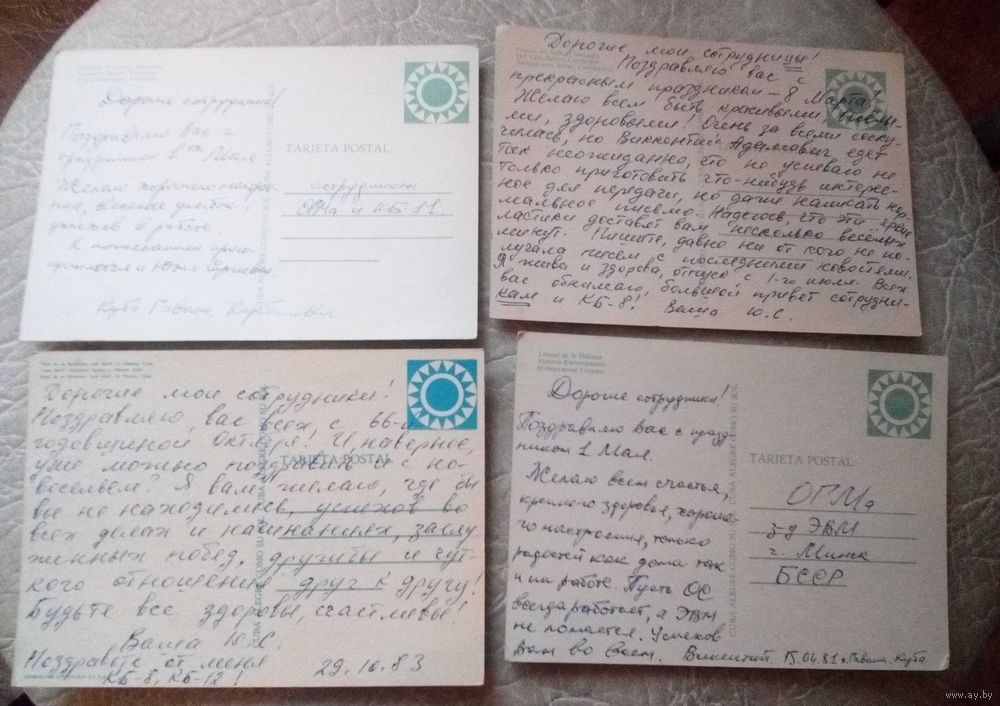 Дорогие сотрудники!
Поздравляю вас с
праздником 1ᵒᵉ Мая.
Желаю хорошего настрое-
ния, веселых улыбок,
успехов в работе.
К пожеланиям присо-
единяется и
Куба, Гавана,
TARJETA POSTAL
сотрудникам
ОГМа и КБ-11.
CUBA ALEGRE COMO SU SOL
Дорогие мои сотрудницы!
Поздравляю вас с
прекрасным праздником – 8 Марта!
Желаю всем быть красивыми, любимы-
ми, здоровыми! Очень за всеми соску-
чилась, но Викентий Адамович едет
так неожиданно, что не успеваю не
только приготовить что-нибудь интерес-
ное для передачи, но даже написать нор-
мальное письмо. Надеюсь, что эти яркие
ластики доставят вам несколько веселых
минут. Пишите, давно ни от кого не по-
лучала писем с последними новостями.
Я жива и здорова, отпуск с 1-го июля. Всех
вас обнимаю, большой привет сотрудни-
кам и КБ-8! Ваша Ю.С.
Дорогие мои сотрудники!
Поздравляю вас всех с 66-й
годовщиной Октября! И, наверное,
уже можно поздравить и с но-
восельем? Я вам желаю, где бы
вы не находились, успехов во
всех делах и начинаниях, заслу-
женных побед, дружбы и чут-
кого отношения друг к другу!
Будьте все здоровы, счастливы!
Ваша Ю.С.
Поздравьте от меня
КБ-8, КБ-12! 29.10.83
TARJETA POSTAL
CUBA ALEGRE COMO SU SOL
Litoral de la Habana
Havana Embankment
Набережная Гаваны
Дорогие сотрудники!
Поздравляю вас с празд-
ником 1 Мая.
Желаю всем счастья,
крепкого здоровья, хороше-
го настроения, только
радостей как дома так
и на работе. Пусть ОС
всегда работает, а ЭВМ
не ломается. Успехов
вам во всем. Викентий. 15.04.81 г. Гавана. Куба
TARJETA POSTAL
ОГМа
з-д ЭВМ
г. Минск
БССР
CUBA ALEGRE COMO SU SOL
www.ay.by